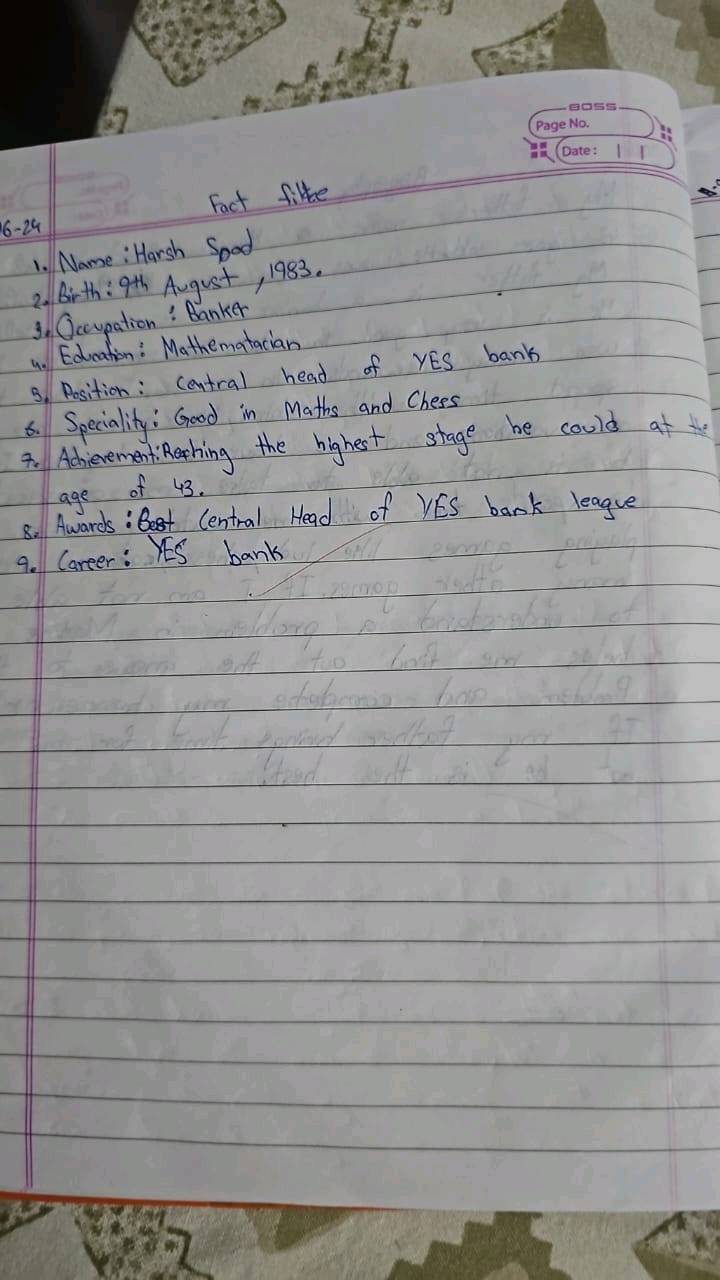 BOSS
Page No.
Date:
6-24
Fact filke
1. Name: Harsh Sood
2. Birth: 9th August, 1983.
3. Occupation: Banker
4. Education: Mathematacian
5. Position: Central head of YES bank
6. Speciality: Good in Maths and Chess
7. Achievement: Reching the highest stage he could at the
age of 43.
8. Awards: Best Central Head of YES bank league
9. Career: YES bank